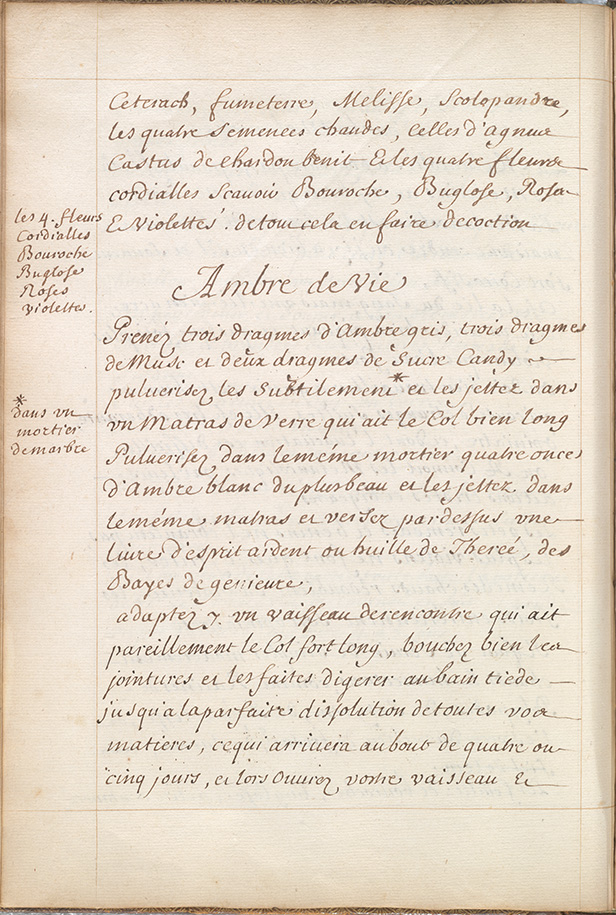 Ceterach, fumeterre, Melisse, Scolopandre,
les quatre Semences chaudes, Celles d'agnus
Castus de Chardon benit & les quatre fleurs
cordialles Scauoir Bouroche, Buglose, Roses
& Violettes. de tout cela en faire decoction
les 4. fleurs
Cordialles
Bouroche
Buglose
Roses
violettes.
Ambre de Vie
Prenez trois dragmes d'Ambre gris, trois dragmes
de Musc et deux dragmes de Sucre Candy
puluerisez les Subtilement * et les jettez dans
vn Matras de Verre qui ait le Col bien long
* dans vn
mortier
de marbre
Puluerisez dans le méme mortier quatre onces
d'Ambre blanc du plus beau et les jettez dans
le méme matras et versez par dessus vne
liure d'esprit ardent ou huille de Thereé, des
Bayes de genieure,
adaptez y vn vaisseau de rencontre qui ait
pareillement le Col fort long, bouchez bien les
jointures et les faites digerer au bain tiede
jusqu'a la parfaite dissolution de toutes vos
matieres, ce qui arriuera au bout de quatre ou
cinq jours, et lors Ouurez vostre vaisseau &